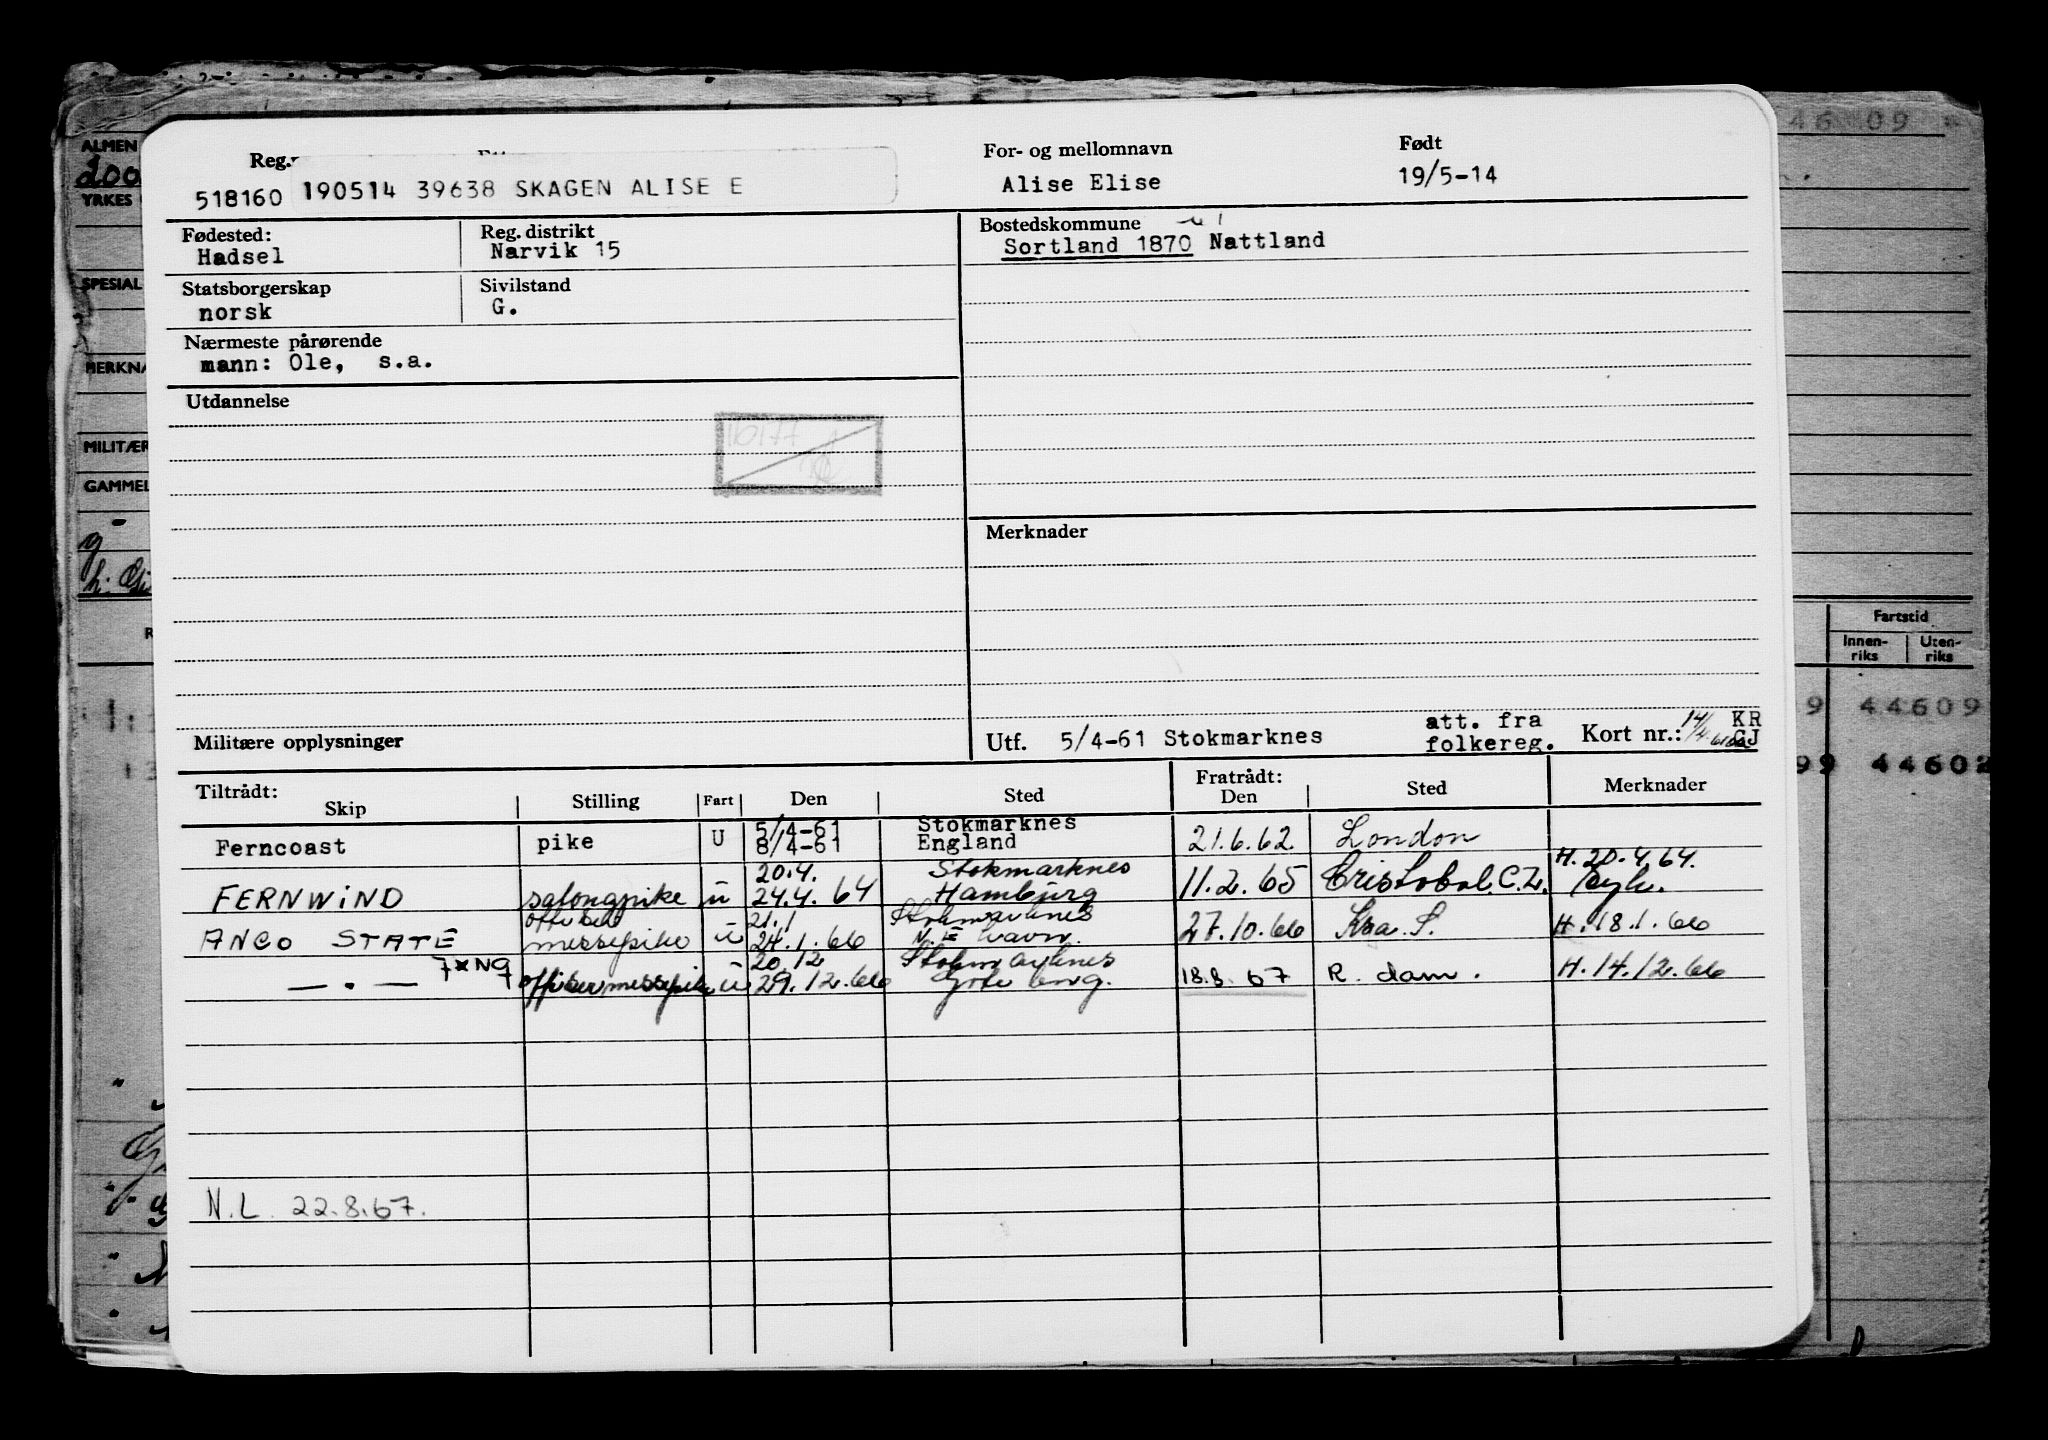 Reg.
For- og mellomnavn
Født
518160 190514 39638 SKAGEN ALISE E
Alise Elise
19/5-14
Fødested:
Hadsel
Reg. distrikt
Narvik 15
Bostedskommune
Sortland 1870 Nattland
Statsborgerskap
norsk
Sivilstand
G.
Nærmeste pårørende
mann: Ole, s.a.
Utdannelse
Merknader
Militære opplysninger
Utf. 5/4-61 Stokmarknes
att. fra
folkereg.
Kort nr.:
KR
GJ
Tiltrådt:
Skip
Stilling
Fart
Den
Sted
Fratrådt:
Den
Sted
Merknader
5/4-61 Stokmarknes
Ferncoast pike U 8/4-61 England 21.6.62 London
20.4. Stokmarknes H. 20.4.64.
FERNWIND salongpike u 24.4.64 Hamburg 11.2.65 Cristobal C.Z.
21.1 Stokmarknes
ANCO STATE messepike u 24.1.66 27.10.66 Kra. S. H. 18.1.66
7XN9 20.12 Stokmarknes
— . — offisermessepike u 29.12.66 18.8.67 R. dam. H. 14.12.66
N.L. 22.8.67.
ALMEN
200
YRKES
SPESIAL
MERKNA
MILITÆR
GAMMEL
46 09
Fartstid
Innen-
riks
Uten-
riks
9 44609
99 44602